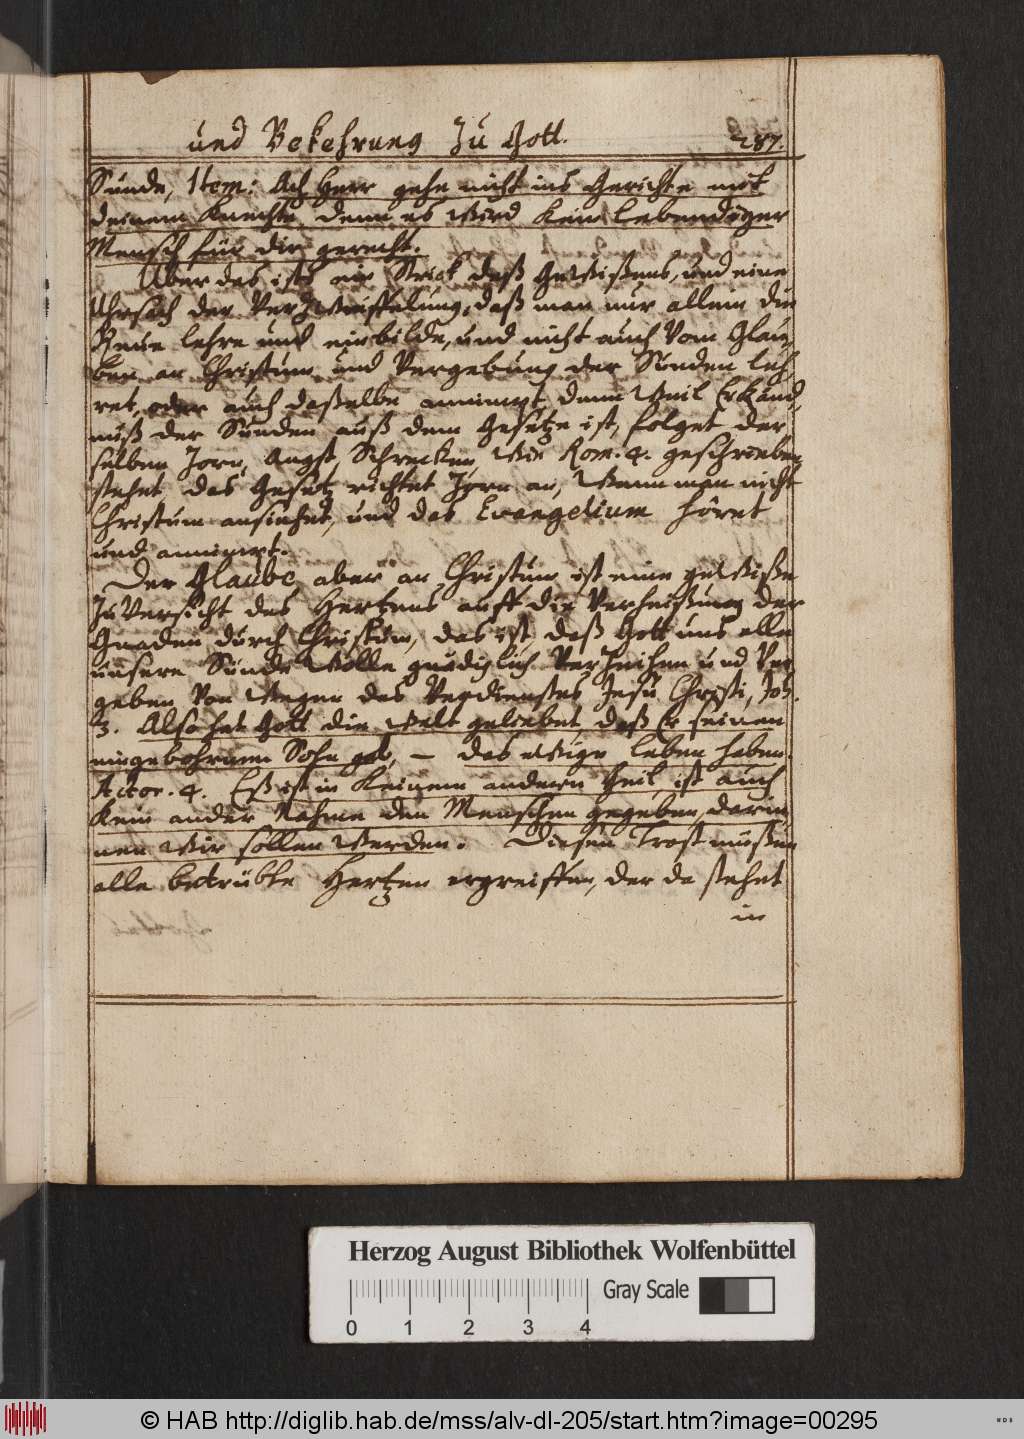 und Bekehrung Zu Gott. 287.
Sünde, Item: Ach Herr gehe nicht ins Gerichte mit
deinem Knechte, denn es wird kein lebendiger
Mensch für dir gerecht.
Uber das ists ein Strick deß Gewißens, und eine
Uhrsach der Verzweiffelung, daß man nur allein die
Reue lehre und einbilde, und nicht auch vom Glau-
ben an Christum und Vergebung der Sünden leh-
ret, oder auch daßelbe annimpt, denn weil Erkänd-
nuß der Sünden auß dem Gesetze ist, folget der
selben Zorn, Angst, Schrecken, wie Rom. 4. geschrieben
stehet, das Gesetz richtet Zorn an, wenn man nicht
Christum ansiehet, und das Evangelium höret
und annimpt.
Der Glaube aber an Christum ist eine gewiße
Zuversicht des Hertzens auff die Verheißung der
Gnaden durch Christum, das ist, daß Gott uns alle
unsere Sünde wolle gnädiglich verzeihen und ver
geben von wegen des Verdienstes Jesu Christi, Joh.
3. Also hat Gott die welt geliebet, daß Er seinen
eingebohrnen Sohn gab, – das ewige leben haben.
Actor. 4. Eß ist in keinem andern Heil, ist auch
kein ander Nahme den Menschen gegeben, darin
nen wir sollen werden. Diesen Trost müßen
alle betrübte Hertzen ergreiffen, der da stehet
in
Herzog August Bibliothek Wolfenbüttel
Gray Scale
0 1 2 3 4
© HAB http://diglib.hab.de/mss/alv-dl-205/start.htm?image=00295
WDB